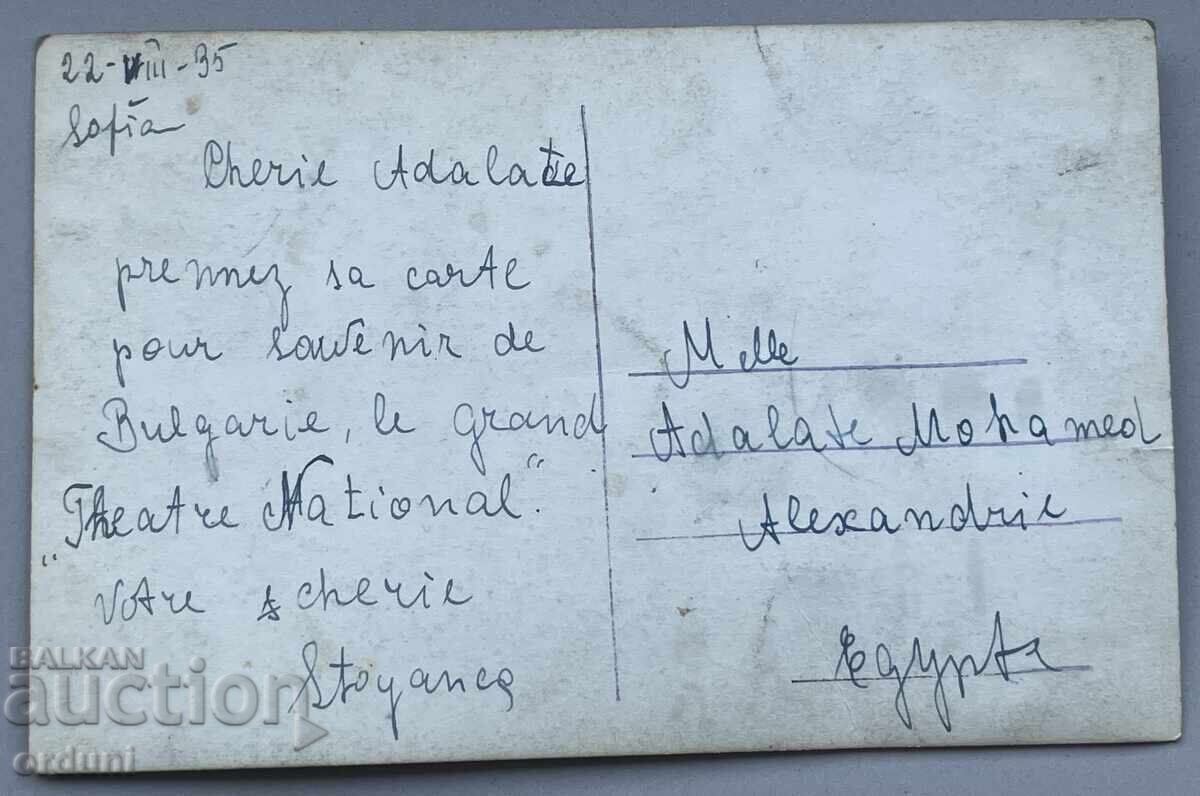 22-VIII-35
Sofia
Cherie Adalate
prennez sa carte
pour souvenir de
Bulgarie, le grand
„Theatre National“.
votre cherie
Stoyanca
Mlle
Adalate Mohamed
Alexandrie
Egypte
BALKAN
auction
orduni